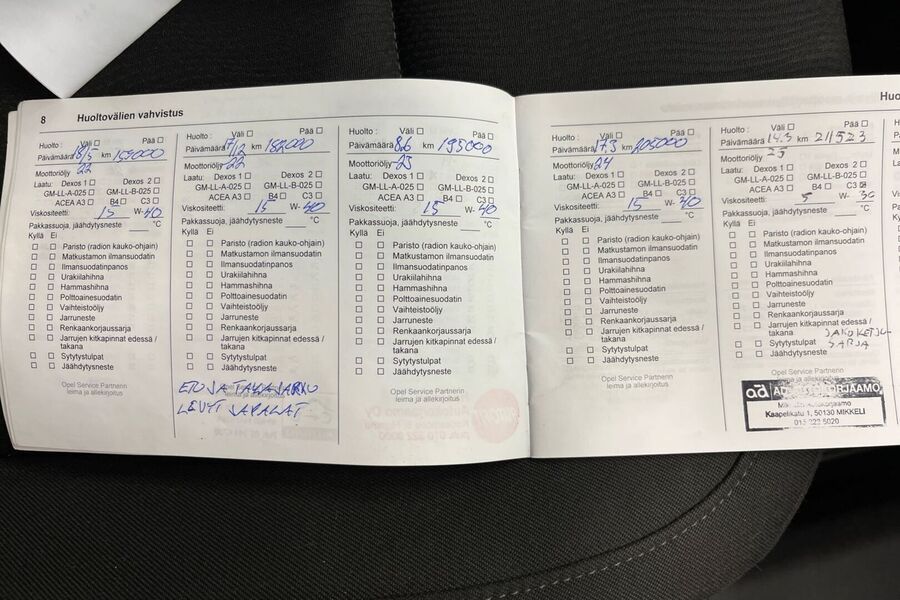 8 Huoltovälien vahvistus
Huolto : Väli ☐ Pää ☐
Päivämäärä 18/5 km 159000
Moottoriöljy 22
Laatu: Dexos 1 ☐ Dexos 2 ☐
GM-LL-A-025 ☐ GM-LL-B-025 ☐
ACEA A3 ☐ B4 ☐ C3 ☐
Viskositeetti: 15 W- 40
Pakkassuoja, jäähdytysneste °C
Kyllä Ei
☐ ☐ Paristo (radion kauko-ohjain)
☐ ☐ Matkustamon ilmansuodatin
☐ ☐ Ilmansuodatinpanos
☐ ☐ Urakiilahihna
☐ ☐ Hammashihna
☐ ☐ Polttoainesuodatin
☐ ☐ Vaihteistoöljy
☐ ☐ Jarruneste
☐ ☐ Renkaankorjaussarja
☐ ☐ Jarrujen kitkapinnat edessä /
takana
☐ ☐ Sytytystulpat
☐ ☐ Jäähdytysneste
Opel Service Partnerin
leima ja allekirjoitus
Huolto : Väli ☐ Pää ☐
Päivämäärä 17/12 km 182000
Moottoriöljy 23
Laatu: Dexos 1 ☐ Dexos 2 ☐
GM-LL-A-025 ☐ GM-LL-B-025 ☐
ACEA A3 ☐ B4 ☐ C3 ☐
Viskositeetti: 15 W- 40
Pakkassuoja, jäähdytysneste °C
Kyllä Ei
☐ ☐ Paristo (radion kauko-ohjain)
☐ ☐ Matkustamon ilmansuodatin
☐ ☐ Ilmansuodatinpanos
☐ ☐ Urakiilahihna
☐ ☐ Hammashihna
☐ ☐ Polttoainesuodatin
☐ ☐ Vaihteistoöljy
☐ ☐ Jarruneste
☐ ☐ Renkaankorjaussarja
☐ ☐ Jarrujen kitkapinnat edessä /
takana
☐ ☐ Sytytystulpat
☐ ☐ Jäähdytysneste
Opel Service Partnerin
leima ja allekirjoitus
ETU JA TAKAJARRU
LEVYT JAPALAT
Huolto : Väli ☐ Pää ☐
Päivämäärä 8.6 km 195000
Moottoriöljy 23
Laatu: Dexos 1 ☐ Dexos 2 ☐
GM-LL-A-025 ☐ GM-LL-B-025 ☐
ACEA A3 ☐ B4 ☐ C3 ☐
Viskositeetti: 15 W- 40
Pakkassuoja, jäähdytysneste °C
Kyllä Ei
☐ ☐ Paristo (radion kauko-ohjain)
☐ ☐ Matkustamon ilmansuodatin
☐ ☐ Ilmansuodatinpanos
☐ ☐ Urakiilahihna
☐ ☐ Hammashihna
☐ ☐ Polttoainesuodatin
☐ ☐ Vaihteistoöljy
☐ ☐ Jarruneste
☐ ☐ Renkaankorjaussarja
☐ ☐ Jarrujen kitkapinnat edessä /
takana
☐ ☐ Sytytystulpat
☐ ☐ Jäähdytysneste
Opel Service Partnerin
leima ja allekirjoitus
Huolto : Väli ☐ Pää ☐
Päivämäärä 17.3 km 205000
Moottoriöljy 24
Laatu: Dexos 1 ☐ Dexos 2 ☐
GM-LL-A-025 ☐ GM-LL-B-025 ☐
ACEA A3 ☐ B4 ☐ C3 ☐
Viskositeetti: 15 W- 40
Pakkassuoja, jäähdytysneste °C
Kyllä Ei
☐ ☐ Paristo (radion kauko-ohjain)
☐ ☐ Matkustamon ilmansuodatin
☐ ☐ Ilmansuodatinpanos
☐ ☐ Urakiilahihna
☐ ☐ Hammashihna
☐ ☐ Polttoainesuodatin
☐ ☐ Vaihteistoöljy
☐ ☐ Jarruneste
☐ ☐ Renkaankorjaussarja
☐ ☐ Jarrujen kitkapinnat edessä /
takana
☐ ☐ Sytytystulpat
☐ ☐ Jäähdytysneste
Opel Service Partnerin
leima ja allekirjoitus
Huolto : Väli ☐ Pää ☐
Päivämäärä 14.3 km 211523
Moottoriöljy 25
Laatu: Dexos 1 ☐ Dexos 2 ☐
GM-LL-A-025 ☐ GM-LL-B-025 ☐
ACEA A3 ☐ B4 ☐ C3 ☒
Viskositeetti: 5 W- 30
Pakkassuoja, jäähdytysneste °C
Kyllä Ei
☐ ☐ Paristo (radion kauko-ohjain)
☐ ☐ Matkustamon ilmansuodatin
☐ ☐ Ilmansuodatinpanos
☐ ☐ Urakiilahihna
☐ ☐ Hammashihna
☐ ☐ Polttoainesuodatin
☐ ☐ Vaihteistoöljy
☐ ☐ Jarruneste
☐ ☐ Renkaankorjaussarja
☐ ☐ Jarrujen kitkapinnat edessä /
takana JAKOKETJU-
☐ ☐ Sytytystulpat SARJA
☐ ☐ Jäähdytysneste
ad
Kaapelikatu 1, 50130 MIKKELI
015 222 5020